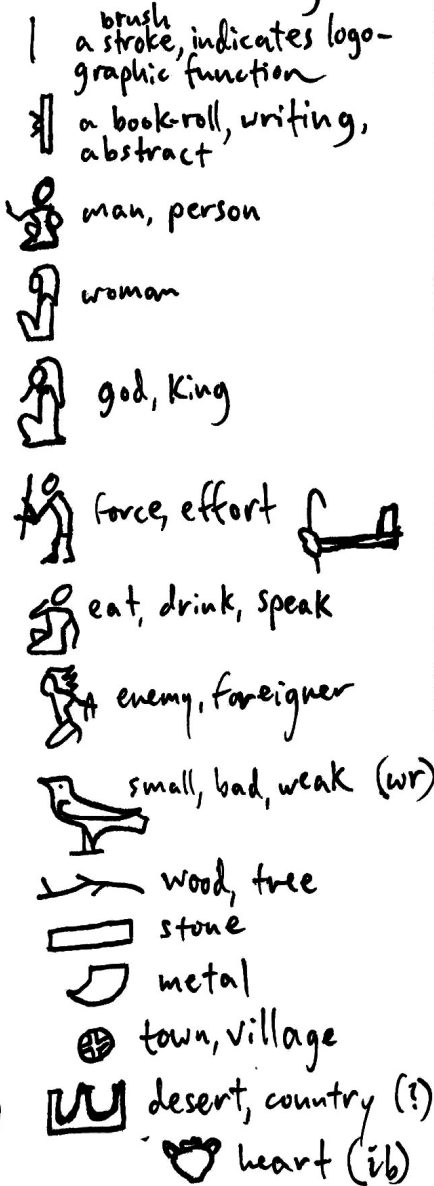 brush
a stroke, indicates logo-
graphic function
a book-roll, writing,
abstract
man, person
woman
god, King
force, effort
eat, drink, speak
enemy, foreigner
small, bad, weak (wr)
wood, tree
stone
metal
town, village
desert, country (?)
heart (ib)